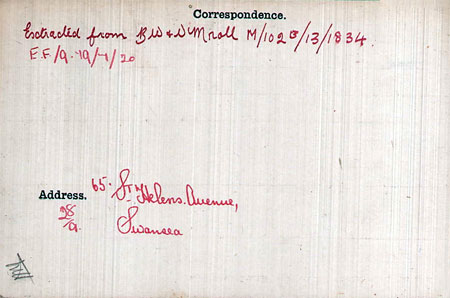 Correspondence.
Extracted from BW & V M roll M/102 B/13/1834.
E.F/9. 19/7/20
Address. 65. St Helens. Avenue,
28/9.
Swansea